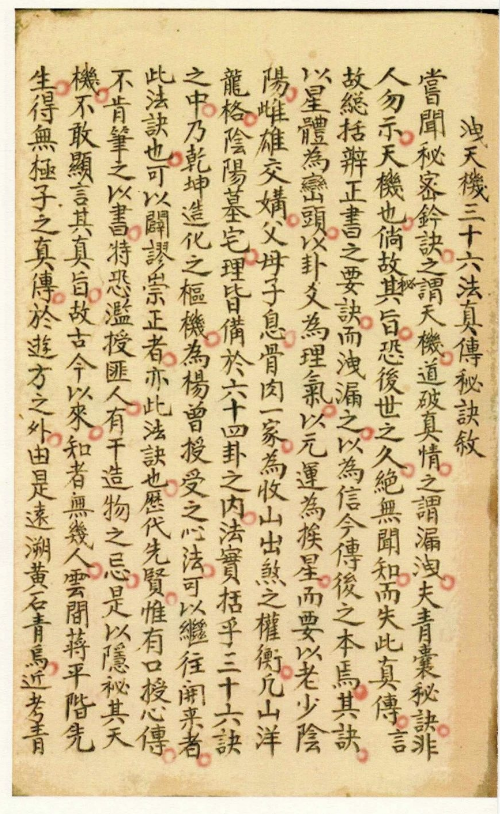 洩天機三十六法真傳秘訣敘
嘗聞秘密鈐訣之謂天機道破真情之謂漏洩夫青囊秘訣非
人勿示天機也倘故秘其旨恐後世之久絶無聞知而失此真傳言
故総括辨正書之要訣而洩漏之以為信今傳後之本焉其訣
以星體為巒頭以卦爻為理氣以元運為挨星而要以老少陰
陽雌雄交媾父母子息骨肉一家為收山出煞之權衡凢山洋
龍格陰陽墓宅理皆備於六十四卦之内法寶括乎三十六訣
之中乃乾坤造化之樞機為楊曾授受之心法可以繼往開来者
此法訣也可以闢謬崇正者亦此法訣也歷代先賢惟有口授心傳
不肯筆之以書特恐濫授匪人有干造物之忌是以隱祕其天
機不敢顯言其真旨故古今以來知者無幾人雲間蔣平階先
生得無極子之真傳於遊方之外由是遠溯黄石青烏近考青